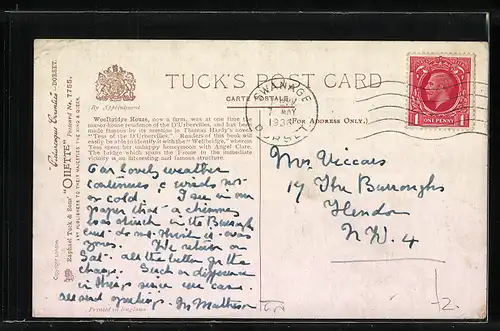 TUCK'S POST CARD
CARTE POSTALE
(FOR ADDRESS ONLY.)
By Appointment
Woolbridge House, now a farm, was at one time the
manor-house residence of the D'Urbervilles, and has been
made famous by its mention in Thomas Hardy's novel
"Tess of the D'Urbervilles." Readers of this book will
easily be able to identify it with the "Wellbridge," whereat
Tess spent her unhappy honeymoon with Angel Clare.
The bridge which spans the Frome in the immediate
vicinity is an interesting and famous structure.
Our lovely weather
continues & winds not
so cold. I see in our
paper that a chimney
was struck in the Burroughs
but do not think it was
yours. We return on
Sat. all the better for the
change. Such a difference
in things since we came.
Love and greetings.
"Picturesque Counties" DORSET.
Raphael Tuck & Sons' "OILETTE" Postcard No. 7755.
ART PUBLISHERS TO THEIR MAJESTIES THE KING & QUEEN.
Printed in England
SWANAGE
MAY
DORSET
1 ONE PENNY 1
Mrs Viccars
17 The Burroughs
Hendon
N.W. 4